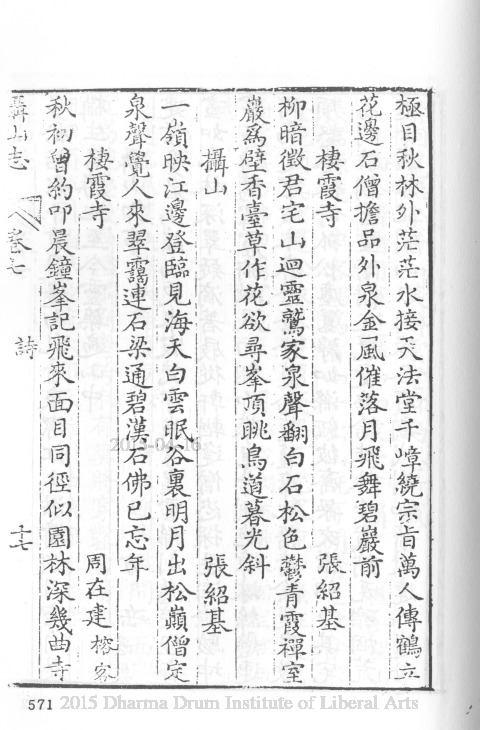 極目秋林外茫茫水接天法堂千嶂繞宗旨萬人傳鶴立
花邊石僧擔品外泉金風催落月飛舞碧巖前
棲霞寺 張紹基
柳暗徵君宅山迴靈鷲家泉聲翻白石松色鬱青霞禪室
巖爲壁香臺草作花欲尋峯頂眺鳥道暮光斜
攝山 張紹基
一嶺映江邊登臨見海天白雲眠谷裏明月出松巔僧定
泉聲覺人來翠靄連石梁通碧漢石佛已忘年
棲霞寺 周在建 榕客
秋初曾約叩晨鐘峯記飛來面目同徑似園林深幾曲寺
攝山志 卷七 詩 十七
2015-04-16
571 2015 Dharma Drum Institute of Liberal Arts